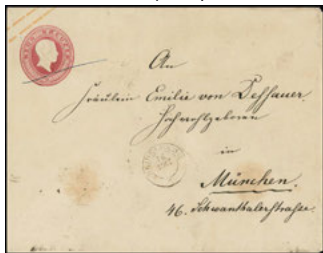 An
Fräulein Emilie von Dessauer
Hochwohlgeboren
in
München.
46. Schwanthalerstraße.